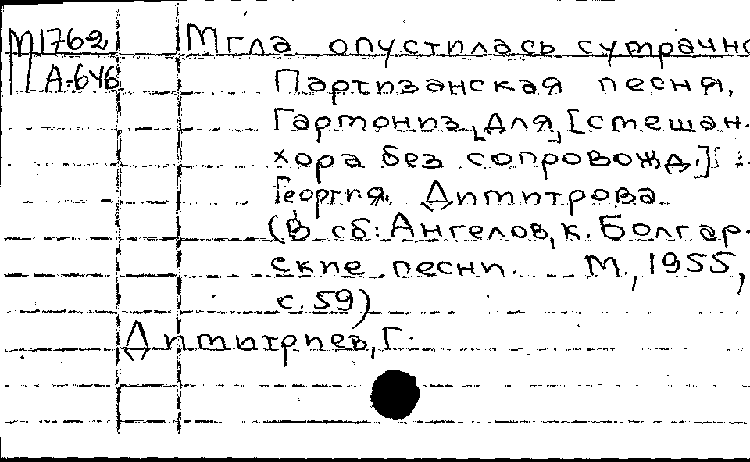 М1762 Мгла опустилась сумрачно
А-646 Партизанская песня.
Гармониз. для [смешан.
хора без сопровожд.]
Георгия Димитрова
(В сб: Ангелов, к. Болгар-
ские песни. М, 1955,
с. 59)
Димитриев, Г.